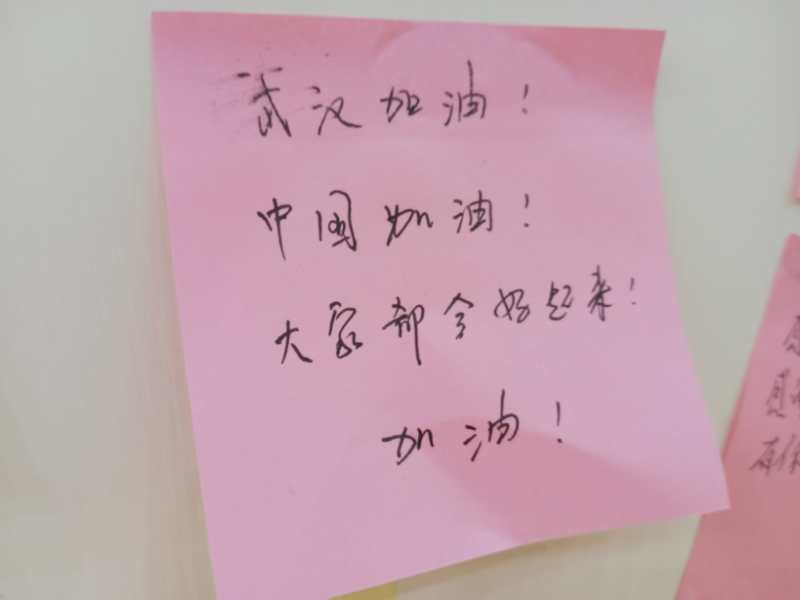 武汉加油!
中国加油!
大家都会好起来!
加油!